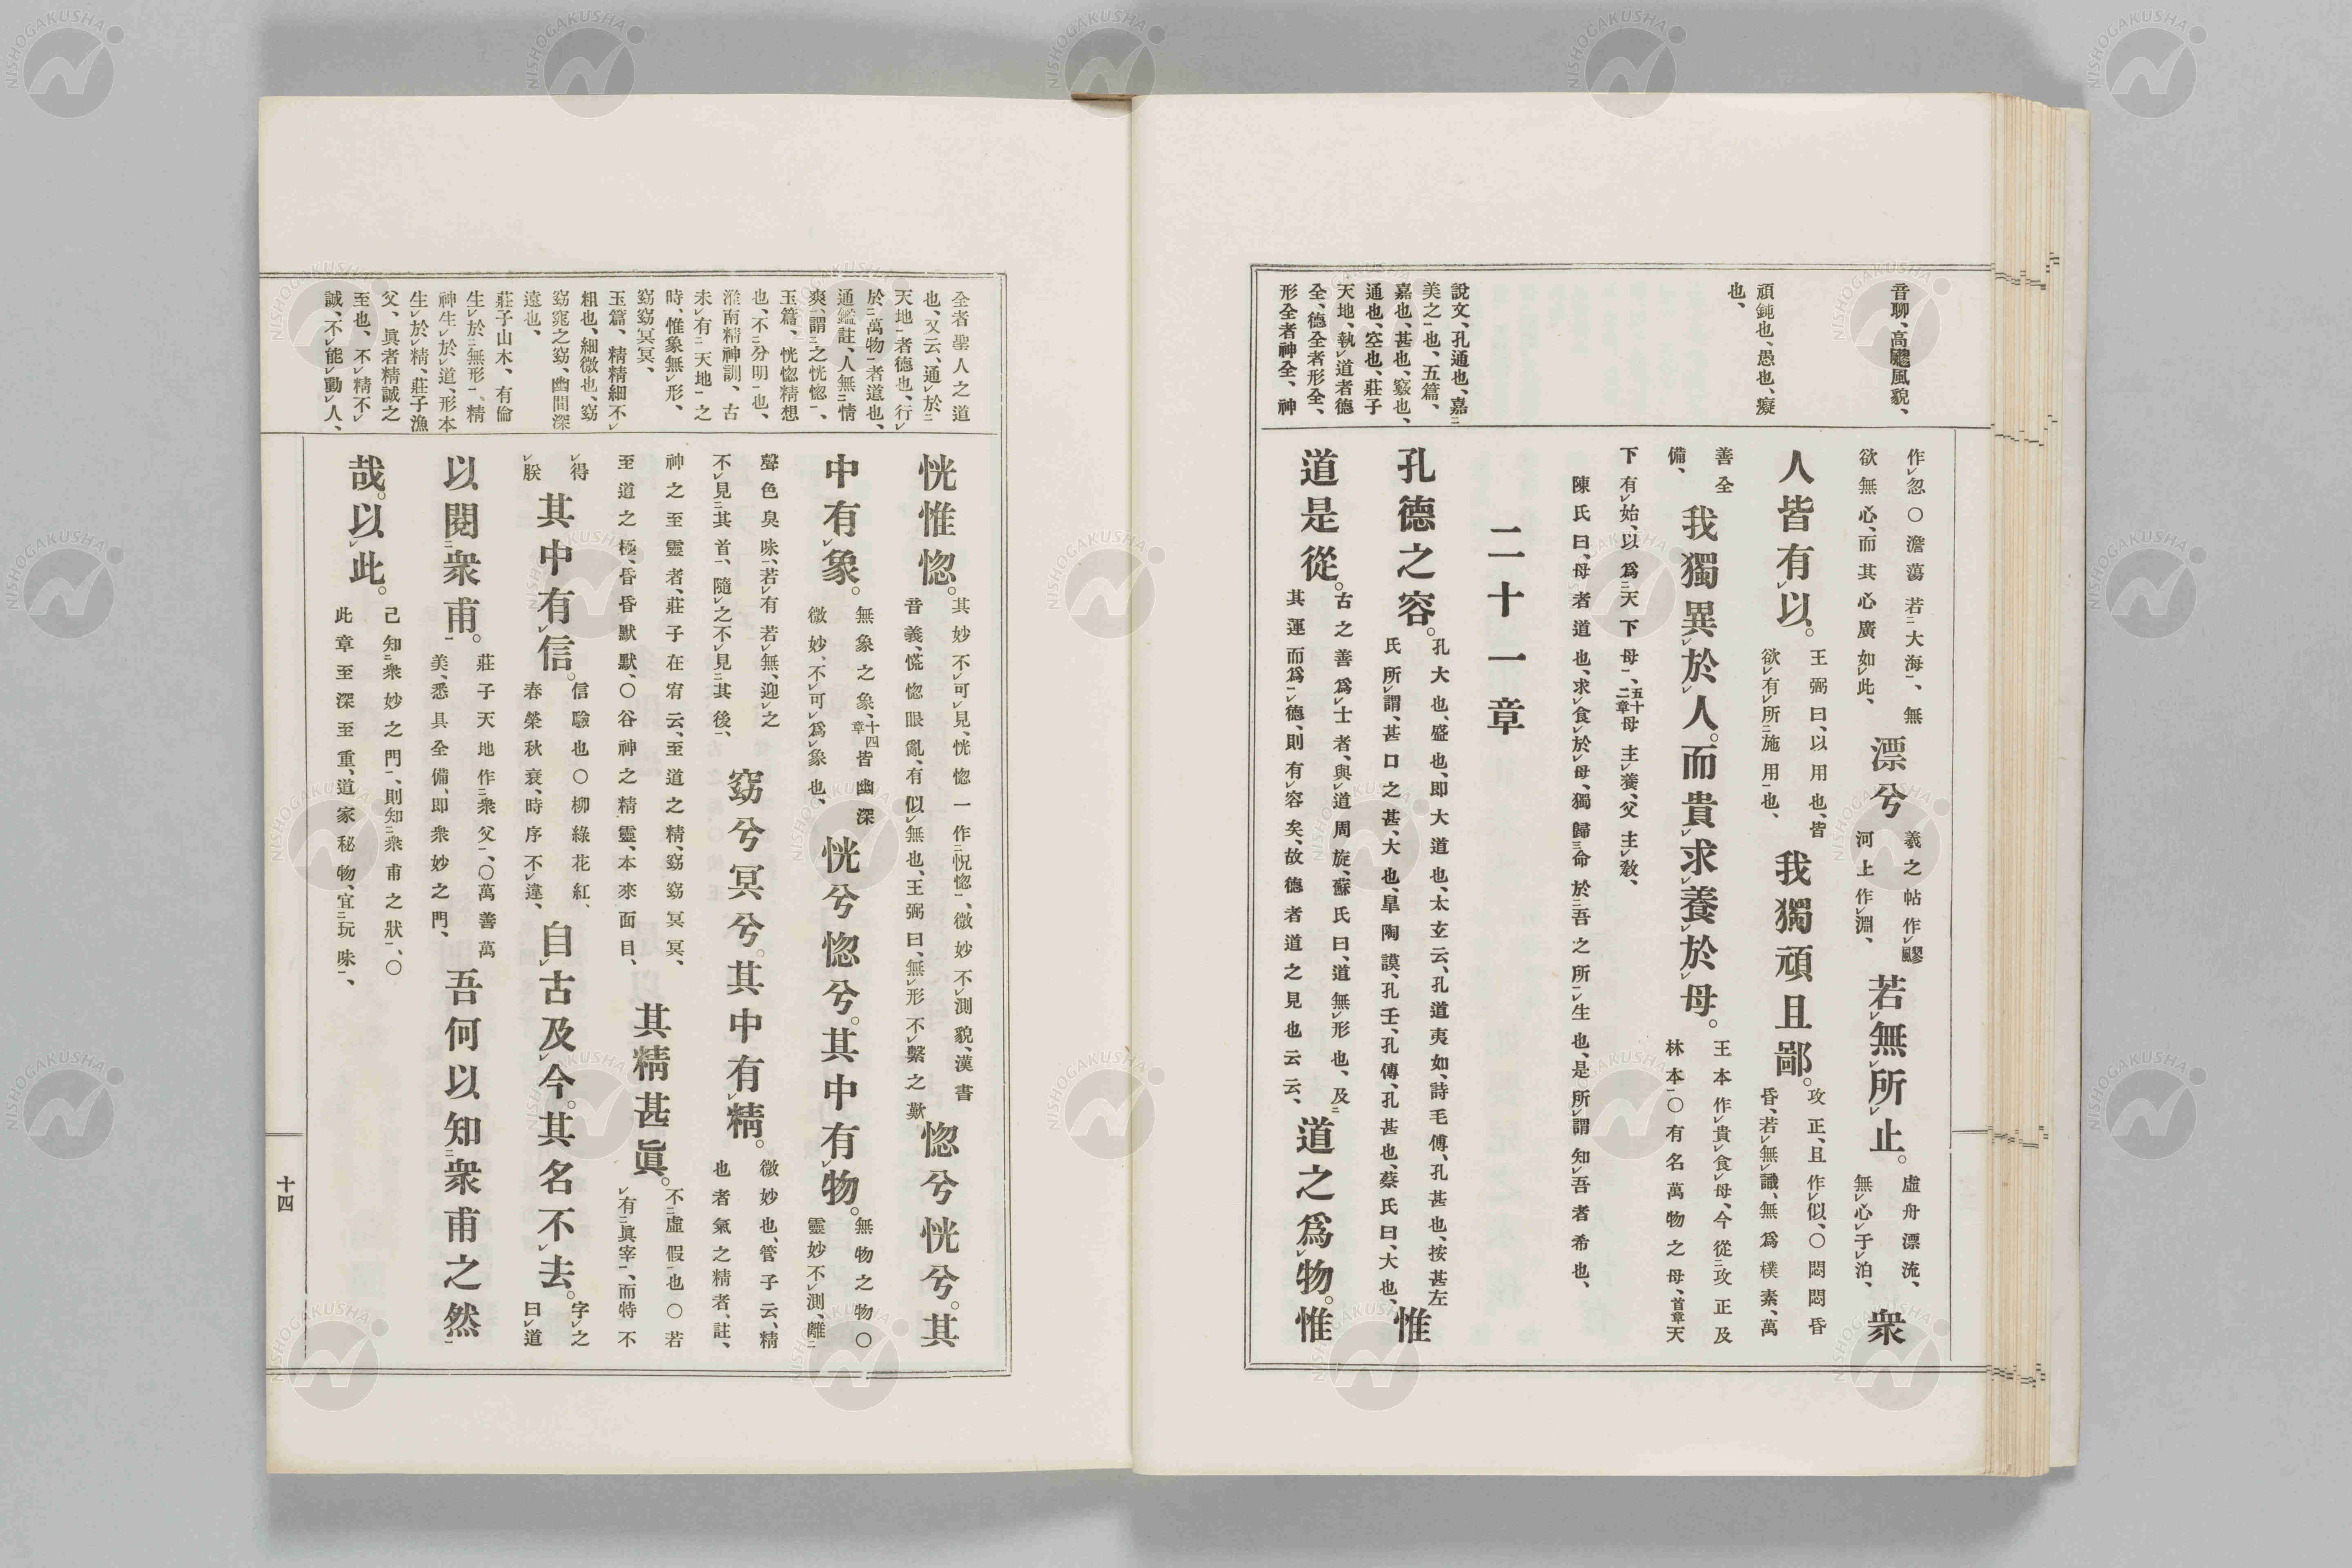 音聊、高飂風貌、
頑鈍也、愚也、癡
也、
説文、孔通也、嘉
美之也、五篇、
嘉也、甚也、竅也、
通也、空也、莊子
天地、執道者德
全、德全者形全、
形全者神全、神
作忽〇澹蕩若大海、無
欲無心、而其心廣如此、
漂兮
羲之帖作飂
河上作淵、
若無所止。
虛舟漂流、
無心于泊、
衆
人皆有以。
王弼曰、以用也、皆
欲有所施用也、
我獨頑且鄙。
攻正、且作似、〇悶悶昏
昏、若無識、無爲樸素、萬
善全
備、
我獨異於人。而貴求養於母。
王本作貴食母、今從攻正及
林本〇有名萬物之母、首章天
下有始、以爲天下母、五十二章母主養、父主敎、
陳氏曰、母者道也、求食於母、獨歸命於吾之所生也、是所謂知吾者希也、
二十一章
孔德之容。
孔大也、盛也、即大道也、太玄云、孔道夷如、詩毛傳、孔甚也、按甚左
氏所謂、甚口之甚、大也、臯陶謨、孔壬、孔傳、孔甚也、蔡氏曰、大也、
惟
道是從。
古之善爲士者、與道周旋、蘇氏曰、道無形也、及
其運而爲德、則有容矣、故德者道之見也云云、
道之爲物。惟
全者聖人之道
也、又云、通於
天地者德也、行
於萬物者道也、
通鑑註、人無情
爽、謂之恍惚、
玉篇、恍惚精想
也、不分明也、
淮南精神訓、古
未有天地之
時、惟象無形、
窈窈冥冥、
玉篇、精精細不
粗也、細微也、窈
窈窕之窈、幽閒深
遠也、
莊子山木、有倫
生於無形、精
神生於道、形本
生於精、莊子漁
父、眞者精誠之
至也、不精不
誠、不能動人、
恍惟惚。
其妙不可見、恍惚一作怳惚、微妙不測貌、漢書
音義、慌惚眼亂、有似無也、王弼曰、無形不繫之歎
惚兮恍兮。其
中有象。
無象之象、十四章皆幽深
微妙、不可爲象也、
恍兮惚兮。其中有物。
無物之物〇
靈妙不測、離
聲色臭味、若有若無、迎之
不見其首、隨之不見其後、
窈兮冥兮。其中有精。
微妙也、管子云、精
也者氣之精者、註、
神之至靈者、莊子在宥云、至道之精、窈窈冥冥、
至道之極、昏昏默默、〇谷神之精靈、本來面目、
其精甚眞。
不虛假也〇若
有眞宰、而特不
得
朕
其中有信。
信驗也〇柳綠花紅、
春榮秋衰、時序不違、
自古及今。其名不去。
字之
曰道
以閱衆甫。
莊子天地作衆父、〇萬善萬
美、悉具全備、即衆妙之門、
吾何以知衆甫之然
哉。以此。
己知衆妙之門、則知衆甫之狀、〇
此章至深至重、道家秘物、宜玩味、
十四